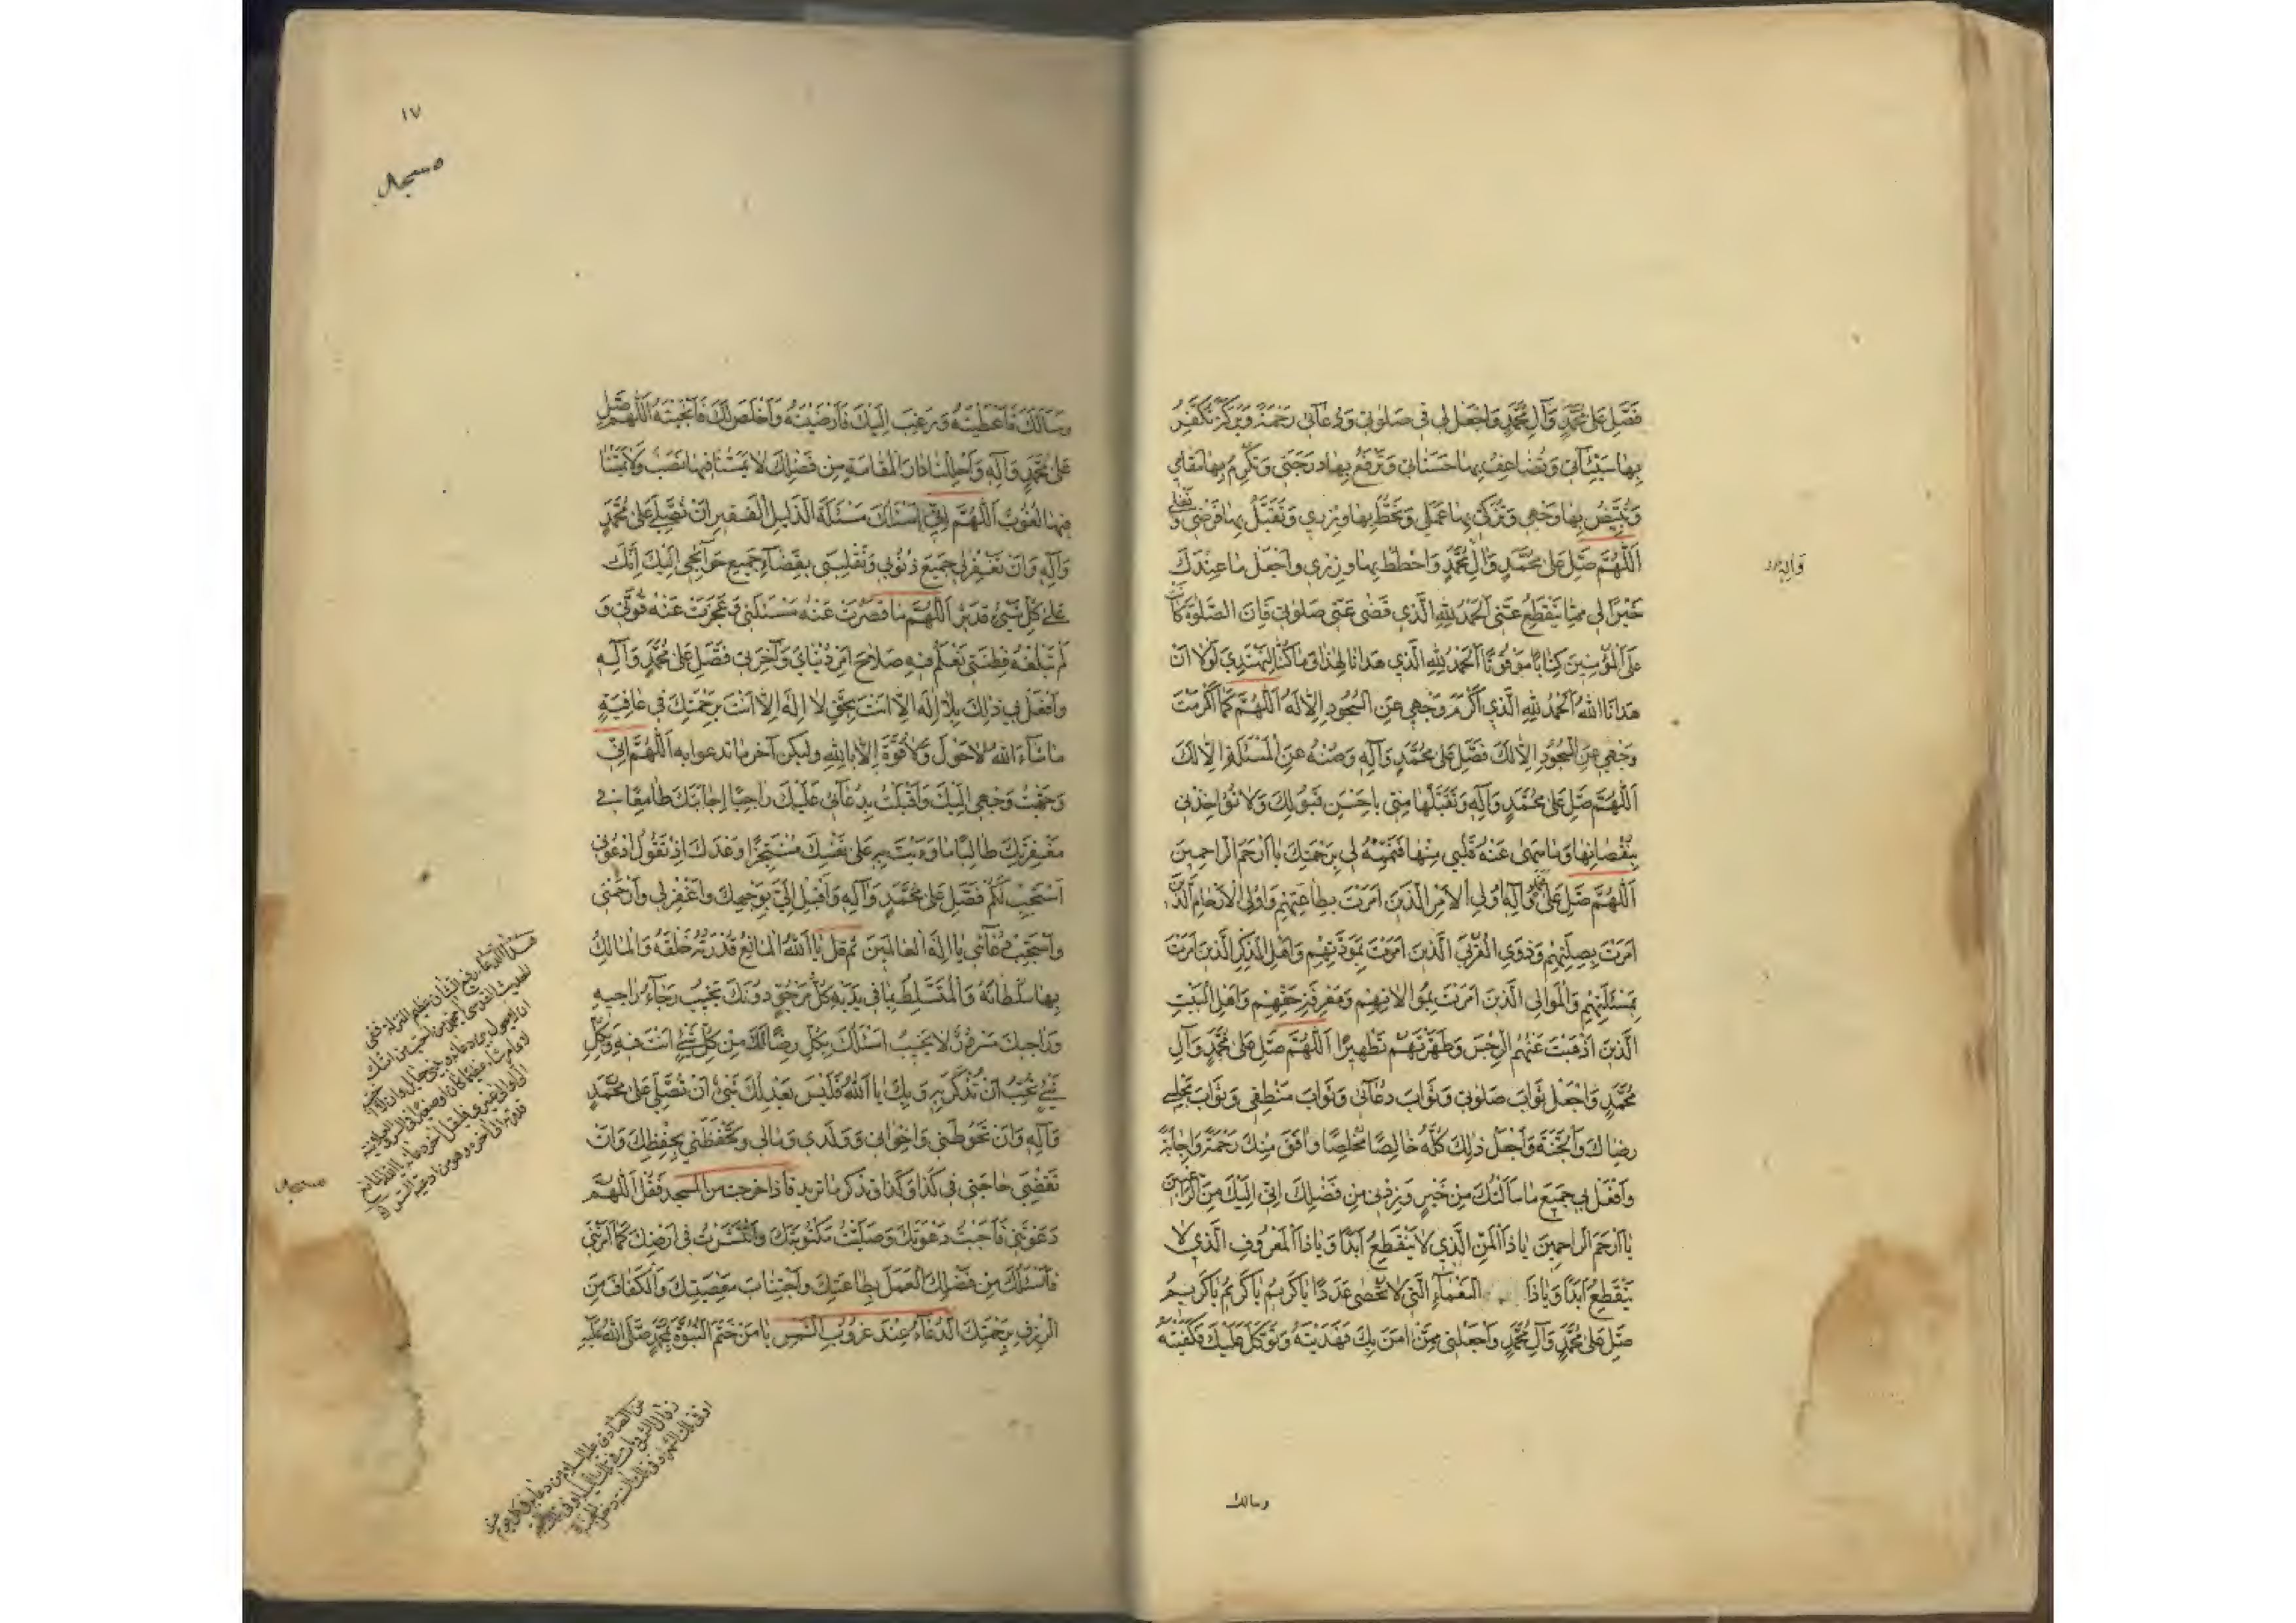 فَصَلِّ عَلٰى مُحَمَّدٍ وَآلِ مُحَمَّدٍ وَاجْعَلْ لِي فِي صَلٰوتِي وَدُعَآئِي رَحْمَةً وَبَرَكَةً تُكَفِّرُ
بِهَا سَيِّئَاتِي وَتُضَاعِفُ بِهَا حَسَنَاتِي وَتَرْفَعُ بِهَا دَرَجَتِي وَتُكْرِمُ بِهَا مَقَامِي
وَتُبَيِّضُ بِهَا وَجْهِي وَتُزَكِّي بِهَا عَمَلِي وَتَحُطُّ بِهَا وِزْرِي وَتَقَبَّلُ بِهَا فَرْضِي وَ نفلي
اَللّٰهُمَّ صَلِّ عَلٰى مُحَمَّدٍ وَآلِ مُحَمَّدٍ وَاحْطُطْ بِهَا وِزْرِي وَاجْعَلْ مَا عِنْدَكَ
وَآلِهِ
خَيْرًا لِي مِمَّا يَنْقَطِعُ عَنِّي اَلْحَمْدُ لِلّٰهِ الَّذِي قَضٰى عَنِّي صَلٰوتِي فَاِنَّ الصَّلٰوةَ كَانَتْ
عَلَى الْمُؤْمِنِينَ كِتَابًا مَوْقُوتًا اَلْحَمْدُ لِلّٰهِ الَّذِي هَدَانَا لِهٰذَا وَمَا كُنَّا لِنَهْتَدِيَ لَوْلَا اَنْ
هَدَانَا اللّٰهُ اَلْحَمْدُ لِلّٰهِ الَّذِي اَكْرَمَ وَجْهِي عَنِ السُّجُودِ اِلَّا لَهُ اَللّٰهُمَّ كَمَا اَكْرَمْتَ
وَجْهِي عَنِ السُّجُودِ اِلَّا لَكَ فَصَلِّ عَلٰى مُحَمَّدٍ وَآلِهِ وَصُنْهُ عَنِ الْمَسْئَلَةِ اِلَّا لَكَ
اَللّٰهُمَّ صَلِّ عَلٰى مُحَمَّدٍ وَآلِهِ وَتَقَبَّلْهَا مِنِّي بِاَحْسَنِ قَبُولِكَ وَلَا تُؤَاخِذْنِي
بِنُقْصَانِهَا وَمَا سَهٰى عَنْهُ قَلْبِي مِنْهَا فَتَمِّمْهُ لِي بِرَحْمَتِكَ يَا اَرْحَمَ الرَّاحِمِينَ
اَللّٰهُمَّ صَلِّ عَلٰى محمد وَآلِهِ اُولِي الْاَمْرِ الَّذِينَ اَمَرْتَ بِطَاعَتِهِمْ وَاُولِي الْاَرْحَامِ الَّذِينَ
اَمَرْتَ بِصِلَتِهِمْ وَذَوِي الْقُرْبٰى الَّذِينَ اَمَرْتَ بِمَوَدَّتِهِمْ وَاَهْلِ الذِّكْرِ الَّذِينَ اَمَرْتَ
بِمَسْئَلَتِهِمْ وَالْمَوَالِي الَّذِينَ اَمَرْتَ بِمُوَالَاتِهِمْ وَمَعْرِفَةِ حَقِّهِمْ وَاَهْلِ الْبَيْتِ
الَّذِينَ اَذْهَبْتَ عَنْهُمُ الرِّجْسَ وَطَهَّرْتَهُمْ تَطْهِيرًا اَللّٰهُمَّ صَلِّ عَلٰى مُحَمَّدٍ وَآلِ
مُحَمَّدٍ وَاجْعَلْ ثَوَابَ صَلٰوتِي وَثَوَابَ دُعَآئِي وَثَوَابَ مَنْطِقِي وَثَوَابَ مَجْلِسِي
رِضَاكَ وَالْجَنَّةَ وَاجْعَلْ ذٰلِكَ كُلَّهُ خَالِصًا مُخْلِصًا وَافَقَ مِنْكَ رَحْمَةً وَاِجَابَةً
وَافْعَلْ بِي جَمِيعَ مَا سَاَلْتُكَ مِنْ خَيْرٍ وَزِدْنِي مِنْ فَضْلِكَ اِنِّي اِلَيْكَ مِنَ الرَّاغِبِينَ
يَا اَرْحَمَ الرَّاحِمِينَ يَا ذَا الْمَنِّ الَّذِي لَا يَنْقَطِعُ اَبَدًا وَيَا ذَا الْمَعْرُوفِ الَّذِي لَا
يَنْقَطِعُ اَبَدًا وَيَا ذَا النَّعْمَآءِ الَّتِي لَا تُحْصٰى عَدَدًا يَا كَرِيمُ يَا كَرِيمُ يَا كَرِيمُ
صَلِّ عَلٰى مُحَمَّدٍ وَآلِ مُحَمَّدٍ وَاجْعَلْنِي مِمَّنْ اٰمَنَ بِكَ فَهَدَيْتَهُ وَتَوَكَّلَ عَلَيْكَ فَكَفَيْتَهُ
وسالك
١٧
وَسَاَلَكَ فَاَعْطَيْتَهُ وَرَغِبَ اِلَيْكَ فَاَرْضَيْتَهُ وَاَخْلَصَ لَكَ فَاَنْجَيْتَهُ اَللّٰهُمَّ صَلِّ
عَلٰى مُحَمَّدٍ وَآلِهِ وَاَحْلِلْنَا دَارَ الْمُقَامَةِ مِنْ فَضْلِكَ لَا يَمَسُّنَا فِيهَا نَصَبٌ وَلَا يَمَسُّنَا
فِيهَا لُغُوبٌ اَللّٰهُمَّ اِنِّي اَسْئَلُكَ مَسْئَلَةَ الذَّلِيلِ الْفَقِيرِ اَنْ تُصَلِّيَ عَلٰى مُحَمَّدٍ
وَآلِهِ وَاَنْ تَغْفِرَ لِي جَمِيعَ ذُنُوبِي وَتَقْلِبَنِي بِقَضَآءِ جَمِيعِ حَوَآئِجِي اِلَيْكَ اِنَّكَ
عَلٰى كُلِّ شَيْءٍ قَدِيرٌ اَللّٰهُمَّ مَا قَصُرَتْ عَنْهُ مَسْئَلَتِي وَعَجَزَتْ عَنْهُ قُوَّتِي وَ
لَمْ تَبْلُغْهُ فِطْنَتِي تَعْلَمُ فِيهِ صَلَاحَ اَمْرِ دُنْيَايَ وَآخِرَتِي فَصَلِّ عَلٰى مُحَمَّدٍ وَآلِهِ
وَافْعَلْ بِي ذٰلِكَ بِلَا اِلٰهَ اِلَّا اَنْتَ بِحَقِّ لَا اِلٰهَ اِلَّا اَنْتَ بِرَحْمَتِكَ فِي عَافِيَةٍ
مَا شَآءَ اللّٰهُ لَا حَوْلَ وَلَا قُوَّةَ اِلَّا بِاللّٰهِ وليكن آخر ما تدعوا به اَللّٰهُمَّ اِنِّي
وَجَّهْتُ وَجْهِي اِلَيْكَ وَاَقْبَلْتُ بِدُعَآئِي عَلَيْكَ رَاجِيًا اِجَابَتَكَ طَامِعًا فِي
مَغْفِرَتِكَ طَالِبًا مَا وَاَيْتَ بِهِ عَلٰى نَفْسِكَ مُسْتَنْجِزًا وَعْدَكَ اِذْ تَقُولُ ادْعُونِي
اَسْتَجِبْ لَكُمْ فَصَلِّ عَلٰى مُحَمَّدٍ وَآلِهِ وَاَقْبِلْ اِلَيَّ بِوَجْهِكَ وَاغْفِرْ لِي وَارْحَمْنِي
وَاسْتَجِبْ دُعَآئِي يَا اِلٰهَ الْعَالَمِينَ ثم قل يَا اَللّٰهُ الْمَانِعُ قُدْرَتُهُ خَلْقَهُ وَالْمَالِكُ
بِهَا سُلْطَانَهُ وَالْمُتَسَلِّطُ بِمَا فِي يَدَيْهِ كُلُّ مَرْجُوٍّ دُونَكَ يُخَيِّبُ رَجَآءَ رَاجِيهِ
وَرَاجِيكَ مَسْرُورٌ لَا يَخِيبُ اَسْئَلُكَ بِكُلِّ رِضًا لَكَ مِنْ كُلِّ شَيْءٍ اَنْتَ فِيهِ وَبِكُلِّ
شَيْءٍ تُحِبُّ اَنْ تُذْكَرَ بِهِ وَبِكَ يَا اَللّٰهُ فَلَيْسَ يَعْدِلُكَ شَيْءٌ اَنْ تُصَلِّيَ عَلٰى مُحَمَّدٍ
وَآلِهِ وَاَنْ تَحُوطَنِي وَاِخْوَانِي وَوَلَدِي وَمَالِي وَتَحْفَظَنِي بِحِفْظِكَ وَاَنْ
تَقْضِيَ حَاجَتِي فِي كَذَا وَكَذَا وتذكر ما تريد فاذا خرجت من المسجد فقل اَللّٰهُمَّ
دَعَوْتَنِي فَاَجَبْتُ دَعْوَتَكَ وَصَلَّيْتُ مَكْتُوبَتَكَ وَانْتَشَرْتُ فِي اَرْضِكَ كَمَا اَمَرْتَنِي
فَاَسْئَلُكَ مِنْ فَضْلِكَ الْعَمَلَ بِطَاعَتِكَ وَاجْتِنَابَ مَعْصِيَتِكَ وَالْكَفَافَ مِنَ
الرِّزْقِ بِرَحْمَتِكَ الدُّعَآءُ عِنْدَ غروب الشمس يَا مَنْ خَتَمَ النُّبُوَّةَ بِمُحَمَّدٍ صَلَّى اللّٰهُ عَلَيْهِ
هذا الدعاء رفيع الشأن عظيم المنزلة ففي
عن الصادق عليه السلام من دعا به في كل يوم